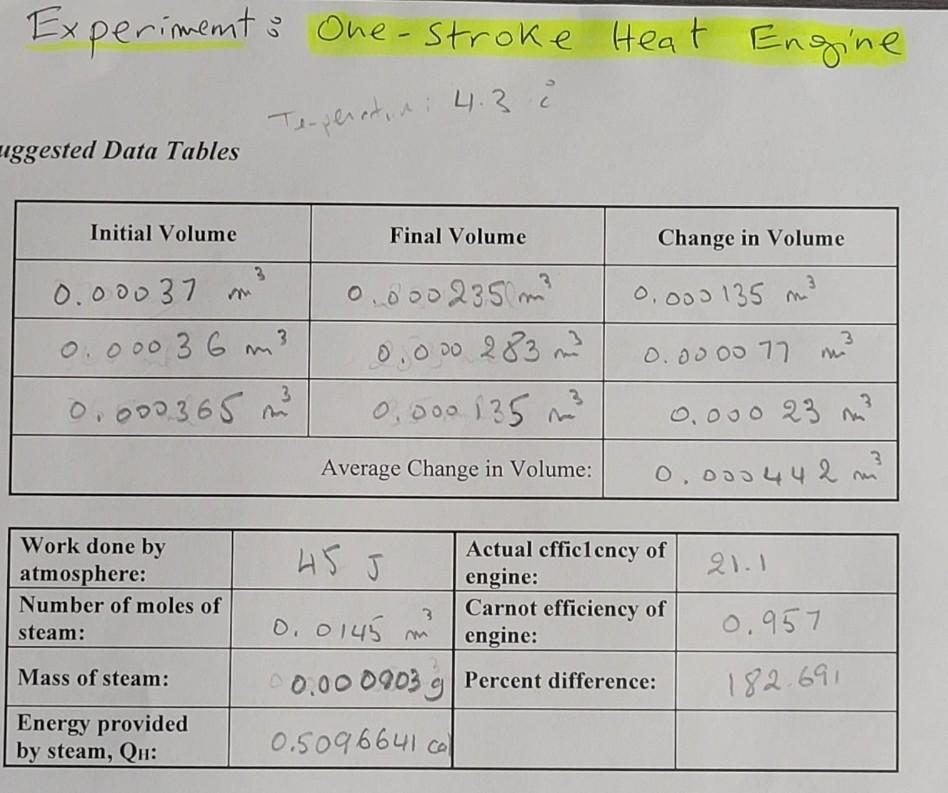 Experiment: One-Stroke Heat Engine
Temperature: 4.3
uggested Data Tables
Initial Volume Final Volume Change in Volume
0.00037 m³ 0.000235 m³ 0.000135 m³
0.00036 m³ 0.000283 m³ 0.000077 m³
0.000365 m³ 0.000135 m³ 0.00023 m³
Average Change in Volume: 0.000442 m³
Work done by atmosphere: 45 J Actual efficiency of engine: 21.1
Number of moles of steam: 0.0145 m³ Carnot efficiency of engine: 0.957
Mass of steam: 0.000903 g Percent difference: 182.691
Energy provided by steam, QH: 0.5096641 cal